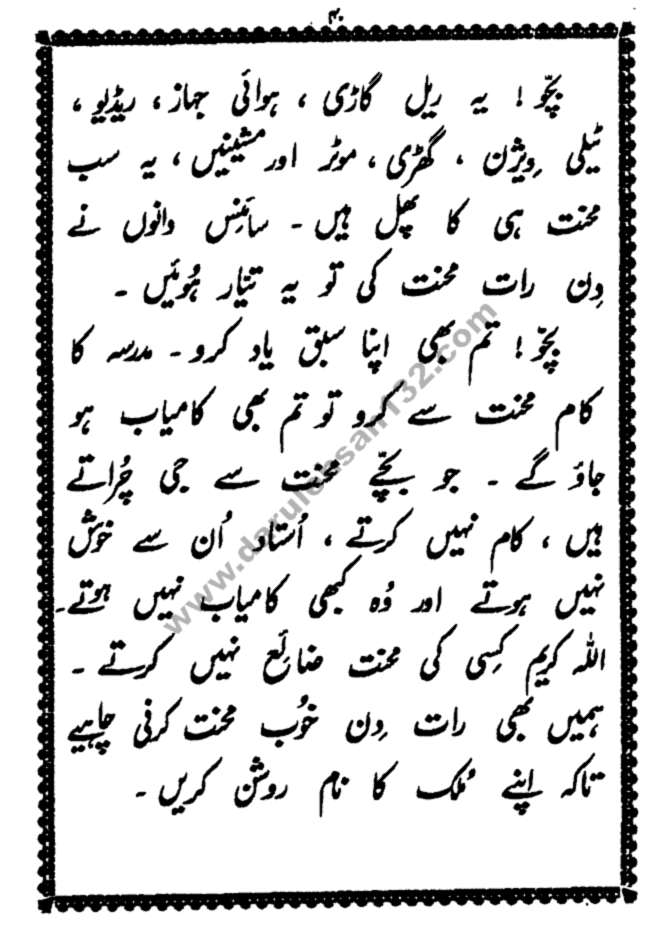 ۳۰
بچّو! یہ ریل گاڑی ، ہوائی جہاز، ریڈیو ،
ٹیلی وِیژن ، گھڑی ، موٹر اور مشینیں ، یہ سب
محنت ہی کا پھل ہیں ۔ سائنس دانوں نے
دِن رات محنت کی تو یہ تیّار ہُوئیں ۔
بچّو! تم بھی اپنا سبق یاد کرو ۔ مدرسہ کا
کام محنت سے کرو تو تم بھی کامیاب ہو
جاؤ گے ۔ جو بچّے محنت سے جی چُراتے
ہیں ، کام نہیں کرتے ، اُستاد اُن سے خوش
نہیں ہوتے اور وُہ کبھی کامیاب نہیں ہوتے۔
اللہ کریم کِسی کی محنت ضائع نہیں کرتے ۔
ہمیں بھی رات دِن خُوب محنت کرنی چاہیے
تاکہ اپنے مُلک کا نام روشن کریں ۔
www.darulehsan132.com